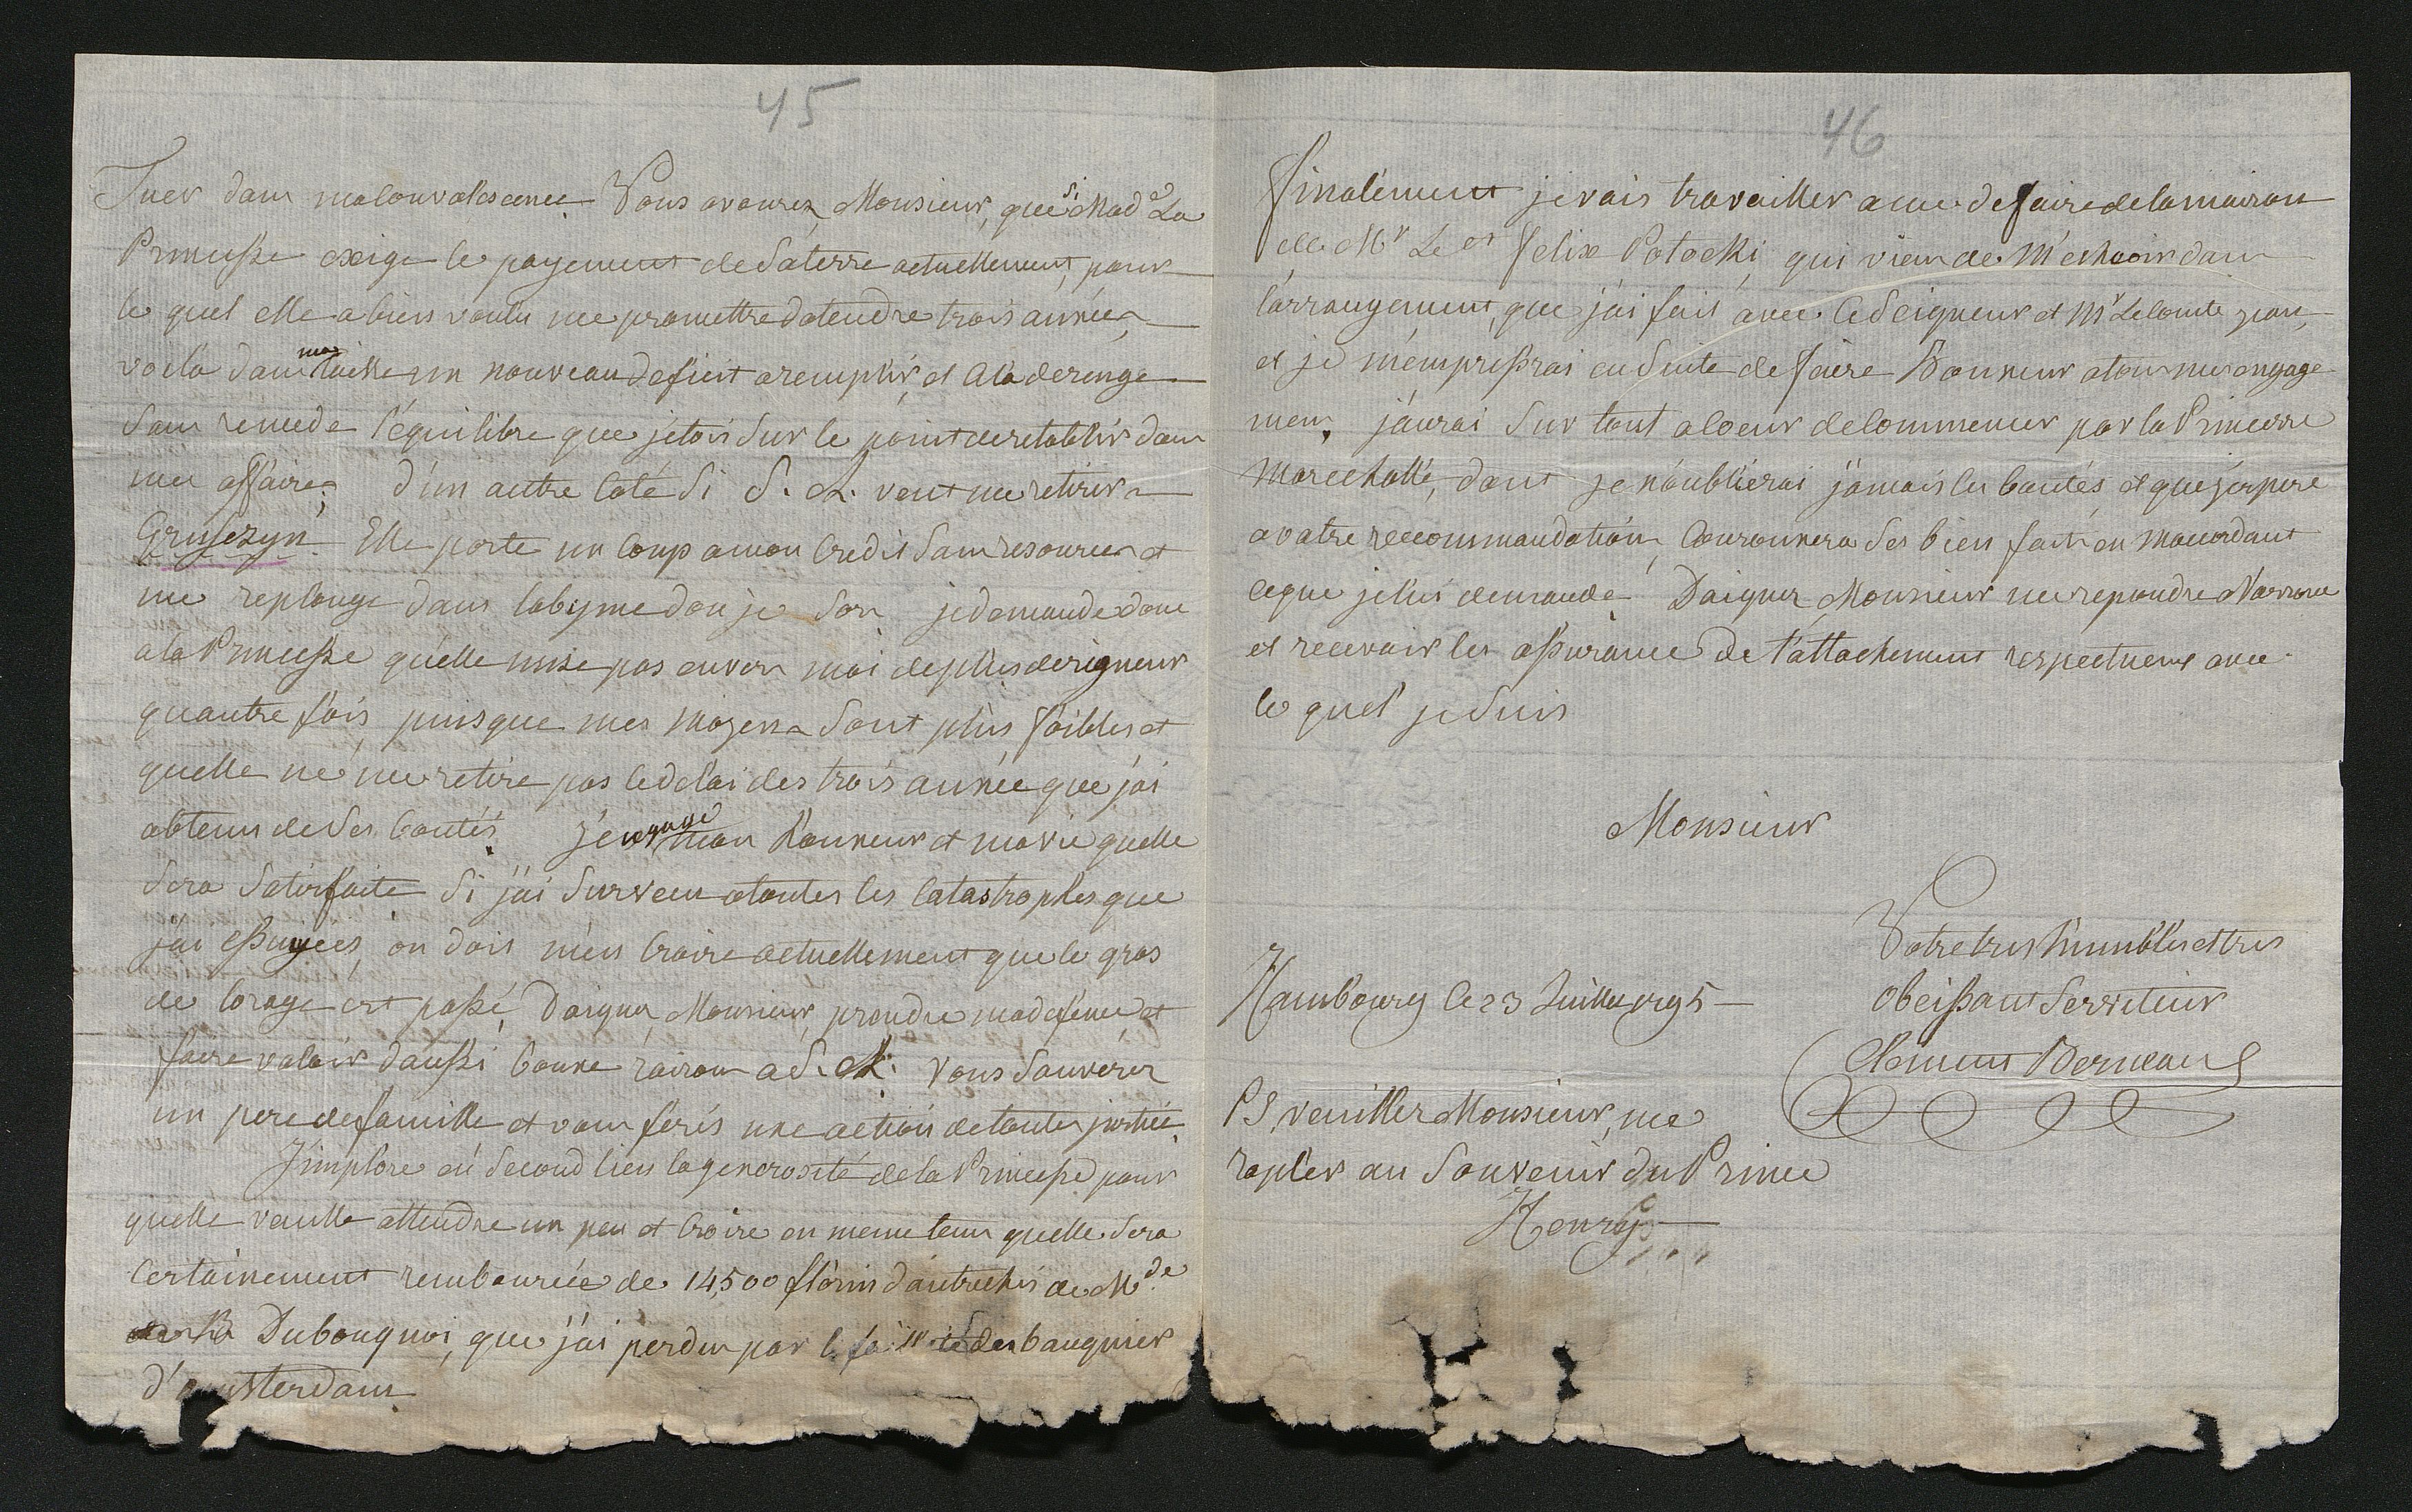 45
Tuer dans ma convalescence. Vous avourez Monsieur, que si Mad.e La
Princesse exige le payement de Saterre actuellement, pour
le quel elle a bien voulu me promettre datendre trois années,
voila dans ma caisse un nouveau deficit a remplir, et Cela derenge
Sans remede l'équilibre que jetois Sur le point de retablir dans
mes affaires; d'un autre Coté Si S. A. veut me retirer
Gruszczyn Elle porte un Coup a mon Credit Sans resources et
me replonge dans labyme dou je Sors je demande donc
a la Princesse quelle nuse pas envers moi de plus de rigueur
quautre fois, puisque mes moyens Sont plus foibles et
quelle ne me retire pas le délai des trois année que j'ai
obtenu de Ses bontés. J'engage mon honneur et ma vie quelle
Sera Satisfaite Si j'ai Survecu a toutes les Catastrophes que
j'ai essuyées, on dois m'en Croire actuellement que le gros
de lorage est passé, Daignez Monsieur, prendre ma defence et
faire valoir daussi bonne raison a S. A. Vous Sauverez
un pere de famille et vous ferés une action de toute justice.
J'implore en Second lieu la generosité de la Princesse pour
quelle veuille attendre un peu et Croire en meme tems quelle Sera
Certainement rembourcée de 14,500 florins d'autrichis de M.de
Dubouquoi, que j'ai perdu par la faillite des banquier
d'Amsterdam
46
Finalement je vais travailler a me defaire de la maison
de Mr Le Ct Felix Potocki, qui vien de m'echoir dans
l'arrangement, que j'ai fait avec Ce Seigneur et Mr Le Comte
et je m'empressrai en Suite de faire Honneur a tous mes engage
mens, j'aurai Sur tout a Coeur de Commencer par la Princesse
Marechalle, dont je n'oublierai jamais les bontés et que j'espere
a votre recommandation Couronnera Ses bien faits en m'accordant
ceque je lui demande. Daignez Monsieur me repondre a Varsovie
et recevoir les assurance de l'attachement respectueux avec
le quel je Suis
Monsieur
Votre tres humble et tres
Obeissant Serviteur
Clement Bernaux
Hambourg le 23 Juillet 1795
PS, veuillez Monsieur, me
rapler au Souvenir du Prince
Henry